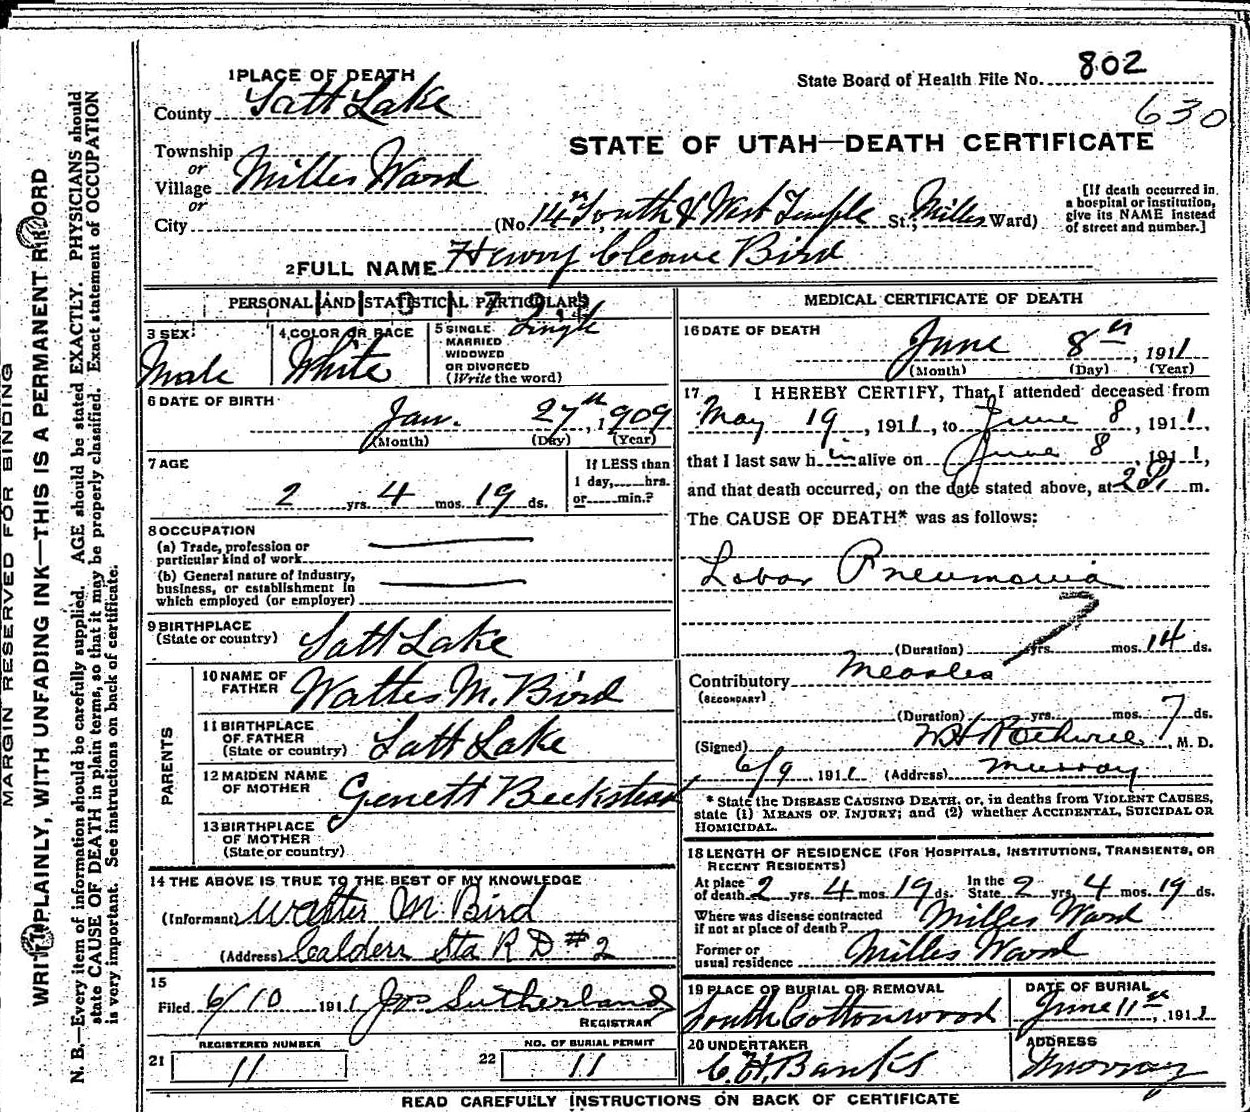 MARGIN RESERVED FOR BINDING
WRITE PLAINLY, WITH UNFADING INK—THIS IS A PERMANENT RECORD
N. B.—Every item of information should be carefully supplied. AGE should be stated EXACTLY. PHYSICIANS should
state CAUSE OF DEATH in plain terms, so that it may be properly classified. Exact statement of OCCUPATION
is very important. See instructions on back of certificate.
1 PLACE OF DEATH
State Board of Health File No. 802
630
County Salt Lake
STATE OF UTAH—DEATH CERTIFICATE
Township
or
Village Milles Ward
or
City
(No. 14th South & West Temple St.; Milles Ward)
[If death occurred in
a hospital or institution,
give its NAME instead
of street and number.]
2 FULL NAME Henry Cleave Bird
PERSONAL AND STATISTICAL PARTICULARS
3 SEX
Male
4 COLOR OR RACE
White
5 SINGLE
MARRIED
WIDOWED
OR DIVORCED
(Write the word)
Single
6 DATE OF BIRTH
Jan. 27th, 1909
(Month) (Day) (Year)
7 AGE
2 yrs. 4 mos. 19 ds.
If LESS than
1 day, hrs.
or min.?
8 OCCUPATION
(a) Trade, profession or
particular kind of work
(b) General nature of industry,
business, or establishment in
which employed (or employer)
9 BIRTHPLACE
(State or country) Salt Lake
PARENTS
10 NAME OF
FATHER Walter M. Bird
11 BIRTHPLACE
OF FATHER
(State or country) Salt Lake
12 MAIDEN NAME
OF MOTHER Genett Beckstead
13 BIRTHPLACE
OF MOTHER
(State or country)
14 THE ABOVE IS TRUE TO THE BEST OF MY KNOWLEDGE
(Informant) Walter M Bird
(Address) Calders Sta R D # 2
15
Filed 6/10 1911 Jos Sutherland
REGISTRAR
21
REGISTERED NUMBER
11
22
NO. OF BURIAL PERMIT
11
MEDICAL CERTIFICATE OF DEATH
16 DATE OF DEATH
June 8th, 1911
(Month) (Day) (Year)
17 I HEREBY CERTIFY, That I attended deceased from
May 19, 1911, to June 8, 1911,
that I last saw h im alive on June 8, 1911,
and that death occurred, on the date stated above, at 2 P. m.
The CAUSE OF DEATH* was as follows:
Lobar Pneumonia
(Duration) yrs. mos. 14 ds.
Contributory Measles
(SECONDARY)
(Duration) yrs. mos. 7 ds.
(Signed) W H Rothwell, M. D.
6/9 1911 (Address) Murray
* State the DISEASE CAUSING DEATH, or, in deaths from VIOLENT CAUSES,
state (1) MEANS OF INJURY; and (2) whether ACCIDENTAL, SUICIDAL OR
HOMICIDAL.
18 LENGTH OF RESIDENCE (FOR HOSPITALS, INSTITUTIONS, TRANSIENTS, OR
RECENT RESIDENTS)
At place
of death 2 yrs. 4 mos. 19 ds. In the
State 2 yrs. 4 mos. 19 ds.
Where was disease contracted
if not at place of death? Milles Ward
Former or
usual residence Milles Ward
19 PLACE OF BURIAL OR REMOVAL
South Cottonwood
DATE OF BURIAL
June 11th, 1911
20 UNDERTAKER
C. H. Banks
ADDRESS
Murray
READ CAREFULLY INSTRUCTIONS ON BACK OF CERTIFICATE